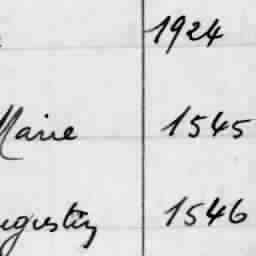 1924
Marie 1545
ugustin 1546